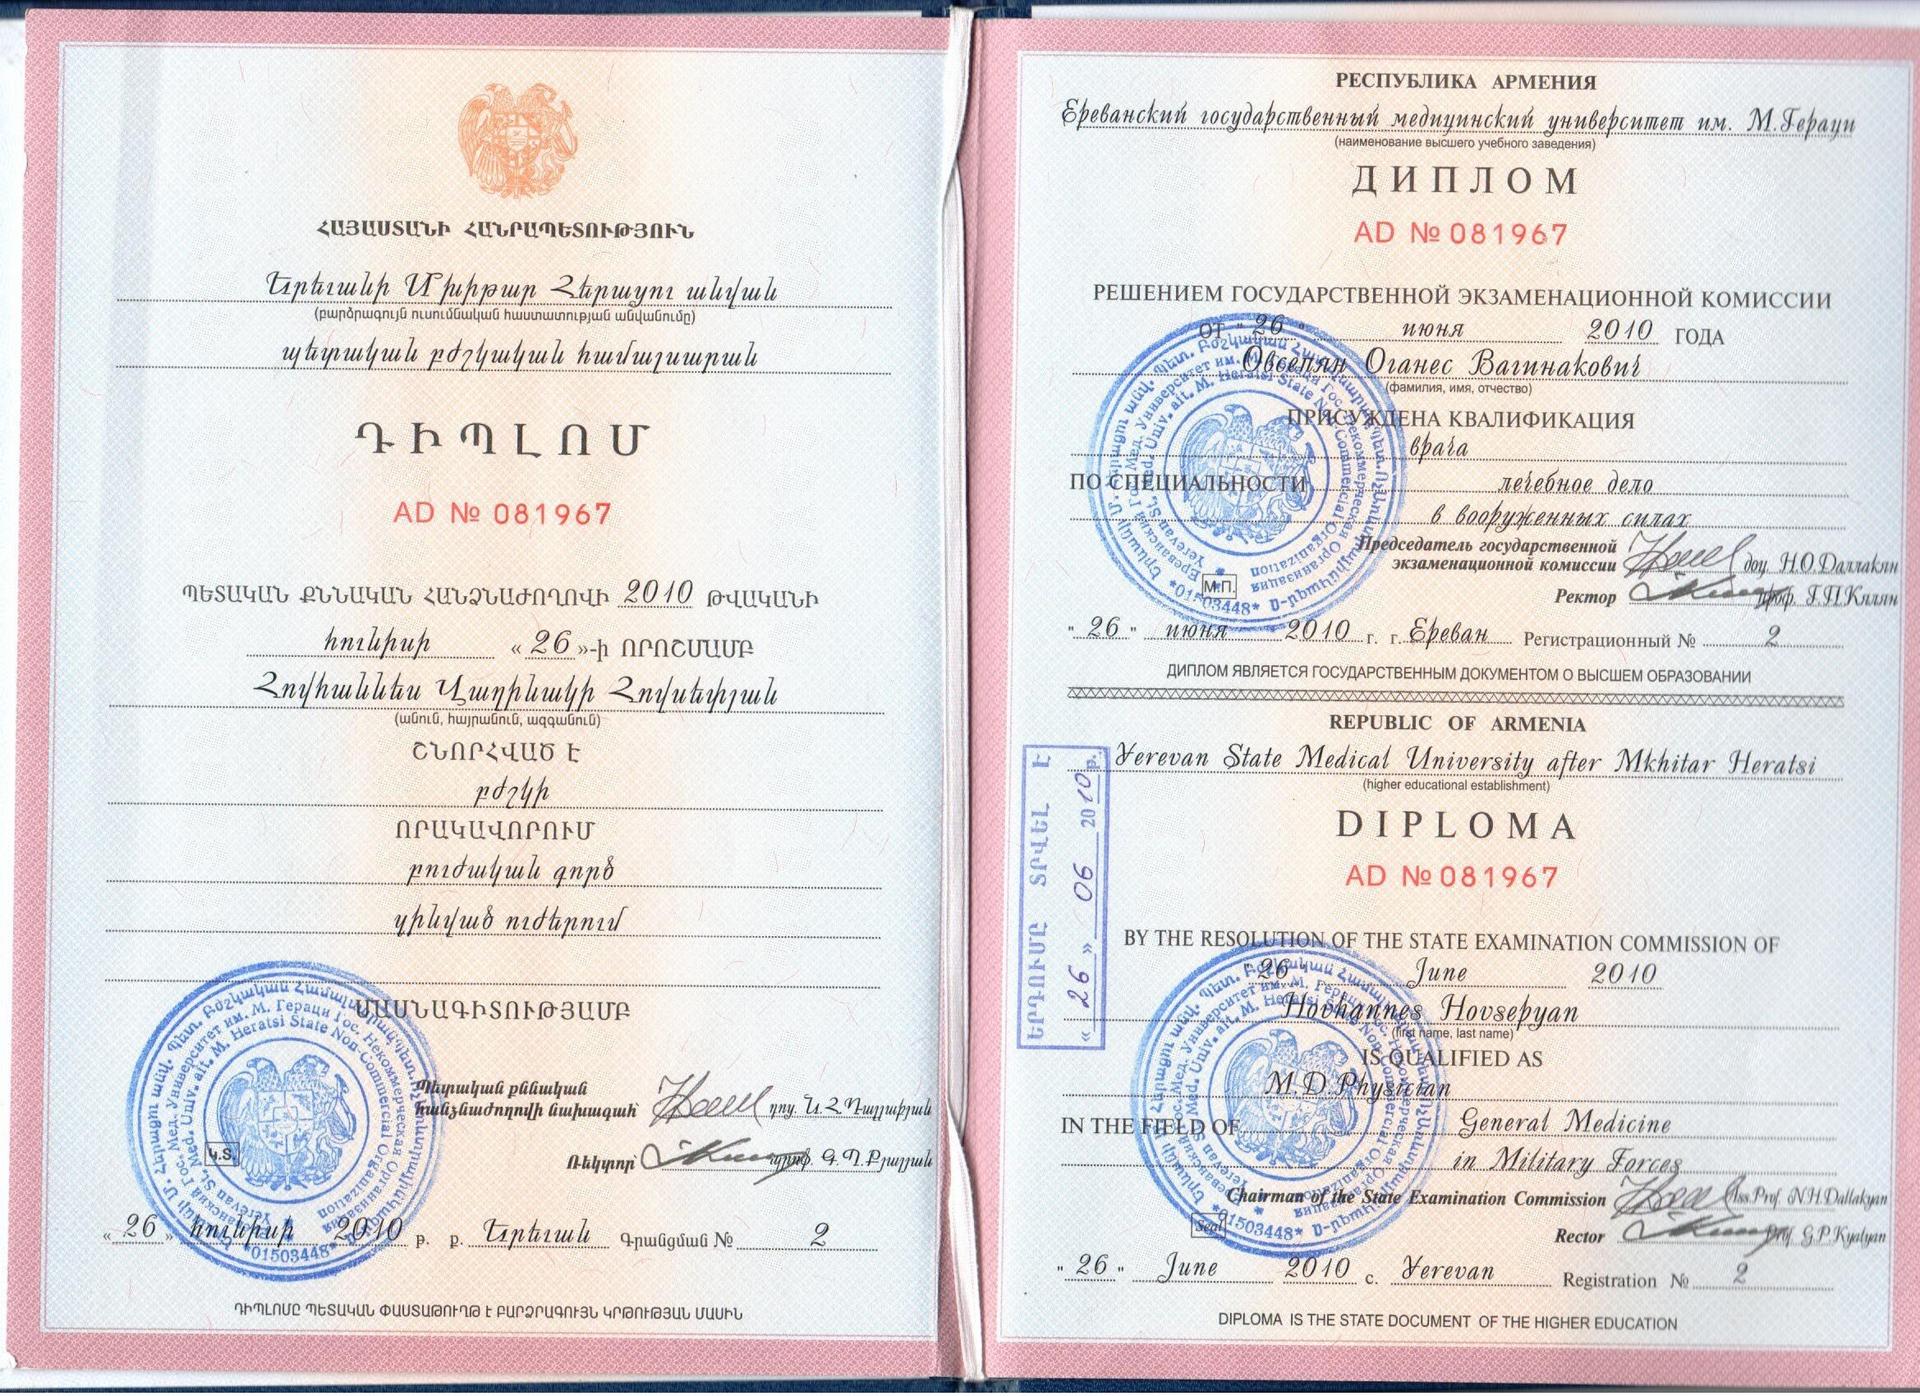 ՀԱՅԱՍՏԱՆԻ ՀԱՆՐԱՊԵՏՈՒԹՅՈՒՆ
Երևանի Մխիթար Հերացու անվան
(բարձրագույն ուսումնական հաստատության անվանումը)
պետական բժշկական համալսարան
ԴԻՊԼՈՄ
AD № 081967
ՊԵՏԱԿԱՆ ՔՆՆԱԿԱՆ ՀԱՆՁՆԱԺՈՂՈՎԻ 2010 ԹՎԱԿԱՆԻ
հունիսի «26»-ի ՈՐՈՇՄԱՄԲ
Հովհաննես Վաղինակի Հովսեփյան
(անուն, հայրանուն, ազգանուն)
ՇՆՈՐՀՎԱԾ Է
բժշկի
ՈՐԱԿԱՎՈՐՈՒՄ
բուժական գործ
զինված ուժերում
ՄԱՍՆԱԳԻՏՈՒԹՅԱՄԲ
Պետական քննական
հանձնաժողովի նախագահ դոց. Ն.Հ.Դալլաքյան
Կ.Տ.
Ռեկտոր պրոֆ. Գ.Պ.Քյալյան
«26» հունիսի 2010 թ. ք. Երևան Գրանցման № 2
*01503448*
ԴԻՊԼՈՄԸ ՊԵՏԱԿԱՆ ՓԱՍՏԱԹՈՒՂԹ է ԲԱՐՁՐԱԳՈՒՅՆ ԿՐԹՈՒԹՅԱՆ ՄԱՍԻՆ
РЕСПУБЛИКА АРМЕНИЯ
Ереванский государственный медицинский университет им. М.Гераци
(наименование высшего учебного заведения)
ДИПЛОМ
AD № 081967
РЕШЕНИЕМ ГОСУДАРСТВЕННОЙ ЭКЗАМЕНАЦИОННОЙ КОМИССИИ
ОТ "26" июня 2010 ГОДА
Овсепян Оганес Вагинакович
(фамилия, имя, отчество)
ПРИСУЖДЕНА КВАЛИФИКАЦИЯ
врача
ПО СПЕЦИАЛЬНОСТИ лечебное дело
в вооруженных силах
Председатель государственной
экзаменационной комиссии доц. Н.О.Даллакян
М.П.
Ректор проф. Г.П.Кялян
*01503448*
"26" июня 2010 г. г. Ереван Регистрационный № 2
ДИПЛОМ ЯВЛЯЕТСЯ ГОСУДАРСТВЕННЫМ ДОКУМЕНТОМ О ВЫСШЕМ ОБРАЗОВАНИИ
REPUBLIC OF ARMENIA
Yerevan State Medical University after Mkhitar Heratsi
(higher educational establishment)
DIPLOMA
AD № 081967
ԵՐԴՈՒՄԸ ՏՐՎԵԼ Է
«26» 06 2010թ.
BY THE RESOLUTION OF THE STATE EXAMINATION COMMISSION OF
"26" June 2010
Hovhannes Hovsepyan
(first name, last name)
IS QUALIFIED AS
M.D.Physician
IN THE FIELD OF General Medicine
in Military Forces
Chairman of the State Examination Commission Ass.Prof. N.H.Dallakyan
Seal
Rector Prof. G.P.Kyalyan
*01503448*
"26" June 2010 c. Yerevan Registration № 2
DIPLOMA IS THE STATE DOCUMENT OF THE HIGHER EDUCATION